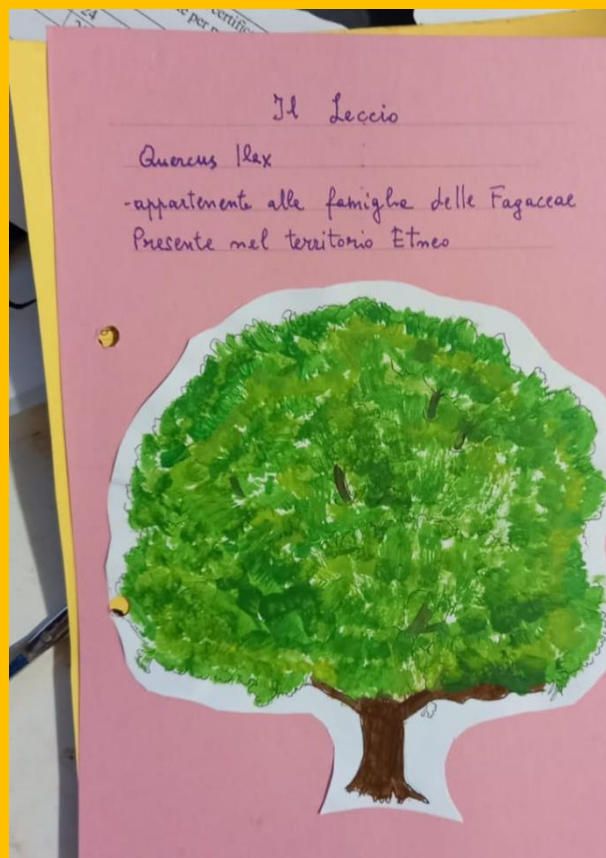 certific
24
e per n
Il Leccio
Quercus Ilex
-appartenente alla famiglia delle Fagaceae
Presente nel territorio Etneo